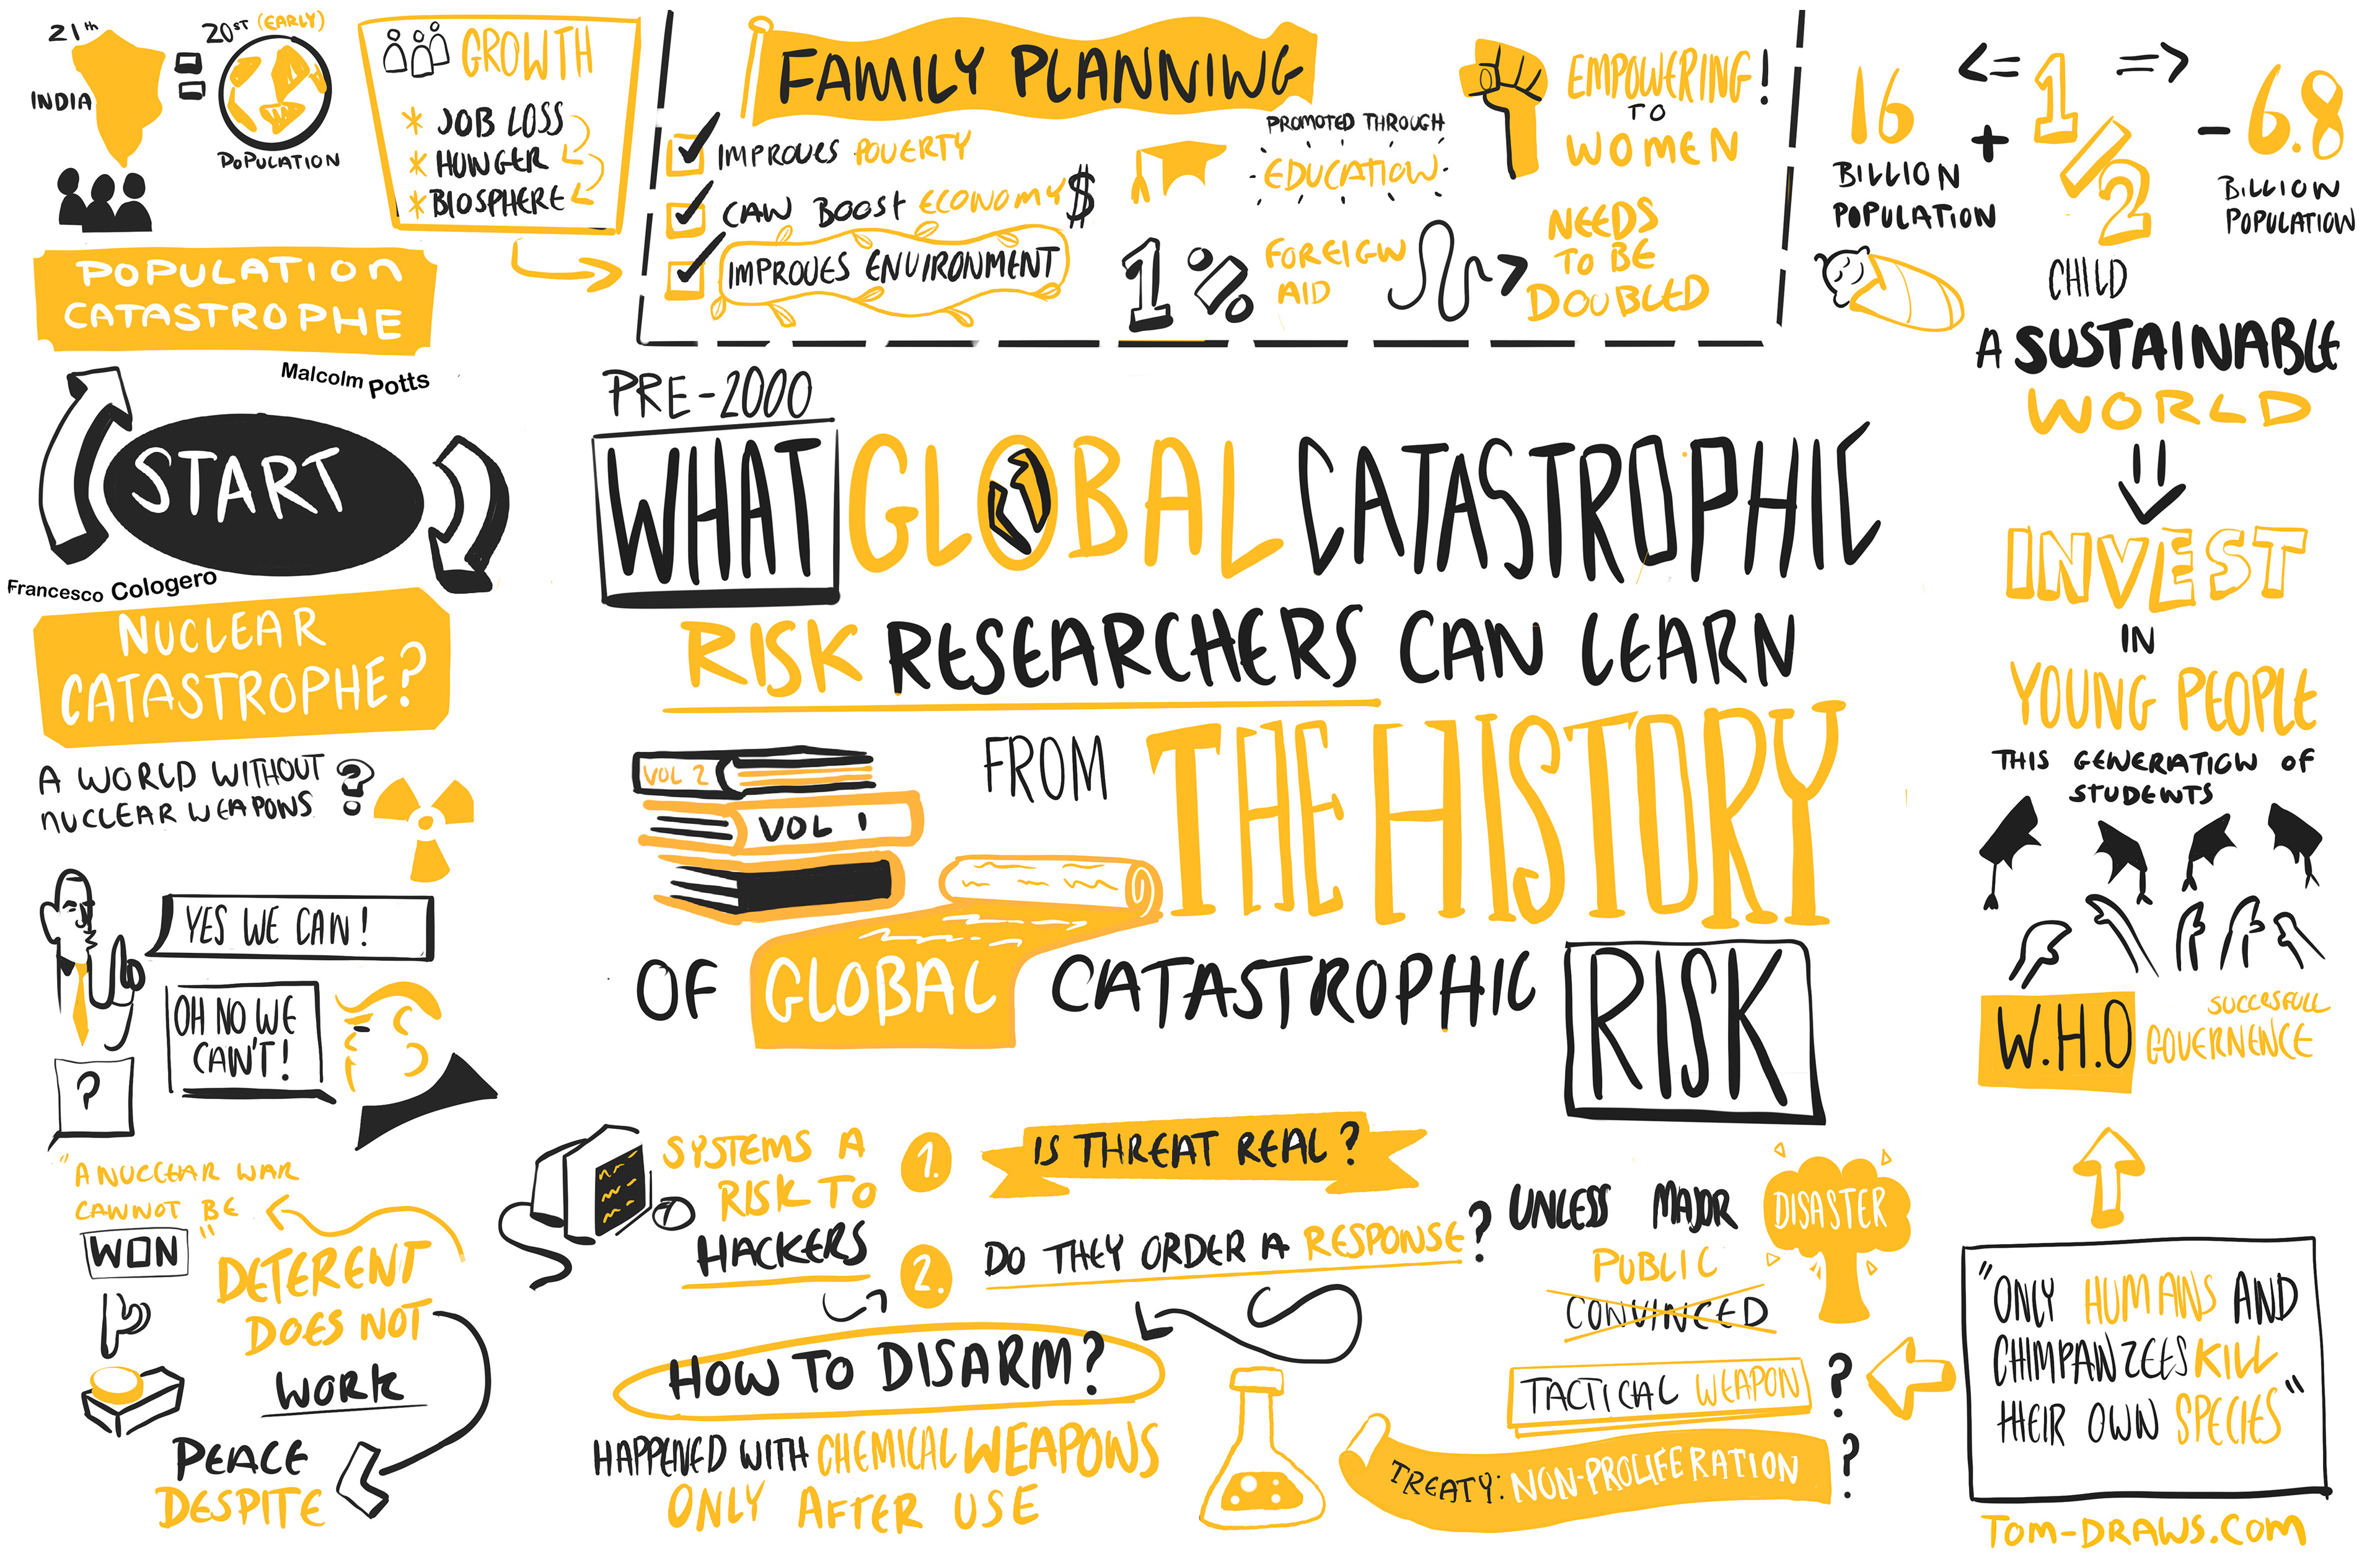 21th
INDIA
20ST (EARLY)
POPULATION
GROWTH
* JOB LOSS
* HUNGER
* BIOSPHERE
POPULATION
CATASTROPHE
Malcolm Potts
FAMILY PLANNING
IMPROVES POVERTY
CAN BOOST ECONOMY $
IMPROVES ENVIRONMENT
PROMOTED THROUGH
EDUCATION
1% FOREIGN
AID
EMPOWERING!
TO
WOMEN
NEEDS
TO BE
DOUBLED
16
BILLION
POPULATION
<= 1/2 =>
+
-
CHILD
6.8
BILLION
POPULATION
A SUSTAINABLE
WORLD
INVEST
IN
YOUNG PEOPLE
THIS GENERATION OF
STUDENTS
W.H.O
SUCCESFULL
GOVERNENCE
"ONLY HUMANS AND
CHIMPANZEES KILL
THEIR OWN SPECIES"
TOM-DRAWS.COM
START
Francesco Cologero
NUCLEAR
CATASTROPHE?
A WORLD WITHOUT
NUCLEAR WEAPONS ?
YES WE CAN!
OH NO WE
CAN'T!
?
"A NUCLEAR WAR
CANNOT BE
WON"
DETERENT
DOES NOT
WORK
PEACE
DESPITE
PRE-2000
WHAT GLOBAL CATASTROPHIC
RISK RESEARCHERS CAN LEARN
FROM THE HISTORY
VOL 2
VOL 1
OF GLOBAL CATASTROPHIC RISK
SYSTEMS A
RISK TO
HACKERS
1. IS THREAT REAL?
2. DO THEY ORDER A RESPONSE?
HOW TO DISARM?
HAPPENED WITH CHEMICAL WEAPONS
ONLY AFTER USE
UNLESS MAJOR DISASTER
PUBLIC
CONVINCED
TACTICAL WEAPON ?
TREATY: NON-PROLIFERATION ?